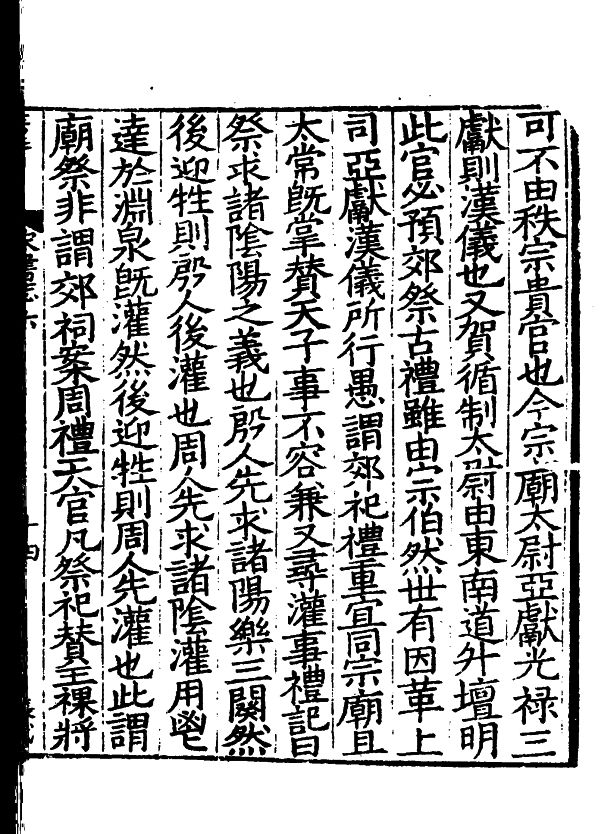 可不由秩宗貴官也今宗廟太尉亞獻光祿三
獻則漢儀也又賀循制太尉由東南道升壇明
此官必預郊祭古禮雖由宗伯然世有因革上
司亞獻漢儀所行愚謂郊祀禮重宜同宗廟且
太常旣掌贊天子事不容兼又尋灌事禮記曰
祭求諸陰陽之義也殷人先求諸陽樂三闋然
後迎牲則殷人後灌也周人先求諸陰灌用鬯
達於淵泉旣灌然後迎牲則周人先灌也此謂
廟祭非謂郊祠案周禮天官凡祭祀贊王祼將
十四